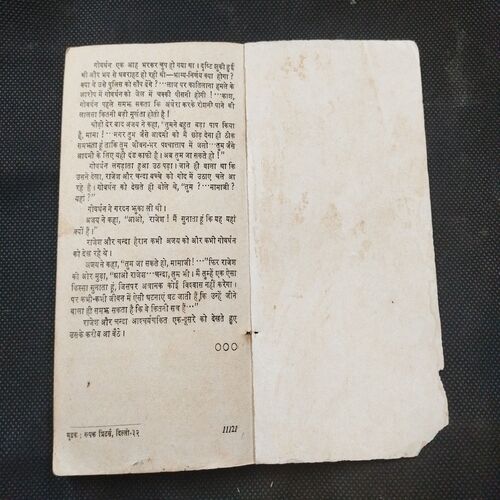 गोवर्धन एक आह भरकर चुप हो गया था। दृष्टि झुकी हुई
थी और भय से घबराहट हो रही थी—भाग्य-निर्णय क्या होगा ?
क्या वे उसे पुलिस को सौंप देंगे ? ···लाज पर कातिलाना हमले के
आरोप में गोवर्धन को जेल में चक्की पीसनी होगी ! ···काश,
गोवर्धन पहले समझ सकता कि अंधेरा करके रोशनी पाने की
लालसा कितनी बड़ी मूर्खता होती है !
थोड़ी देर बाद अजय ने कहा, "तुमने बहुत बड़ा पाप किया
है, मामा ! ···मगर तुम जैसे आदमी को मैं छोड़ देना ही ठीक
समझता हूं ताकि तुम जीवन-भर पश्चात्ताप में जलो ···तुम जैसे
आदमी के लिए यही दंड काफी है। अब तुम जा सकते हो !"
गोवर्धन लंगड़ाता हुआ उठ पड़ा। जाने ही वाला था कि
उसने देखा, राजेश और चन्दा बच्चे को गोद में उठाए चले आ
रहे हैं। गोवर्धन को देखते ही बोले थे, "तुम ? ···मामाजी ?
यहां ?"
गोवर्धन ने गरदन झुका ली थी।
अजय ने कहा, "आओ, राजेश ! मैं सुनाता हूं कि यह यहां
क्यों हैं।"
राजेश और चन्दा हैरान कभी अजय को और कभी गोवर्धन
को देख रहे थे।
अजय ने कहा, "तुम जा सकते हो, मामाजी ! ···"फिर राजेश
की ओर मुड़ा, "आओ राजेश···चन्दा, तुम भी। मैं तुम्हें एक ऐसा
किस्सा सुनाता हूं, जिसपर अचानक कोई विश्वास नहीं करेगा।
पर कभी-कभी जीवन में ऐसी घटनाएं घट जाती हैं कि उन्हें जीने
वाला ही समझ सकता है कि वे कितनी सच हैं···"
राजेश और चन्दा आश्चर्यचकित एक-दूसरे को देखते हुए
उसके करीब आ बैठे।
०००
मुद्रक : रूपक प्रिंटर्स, दिल्ली-३२
11/21